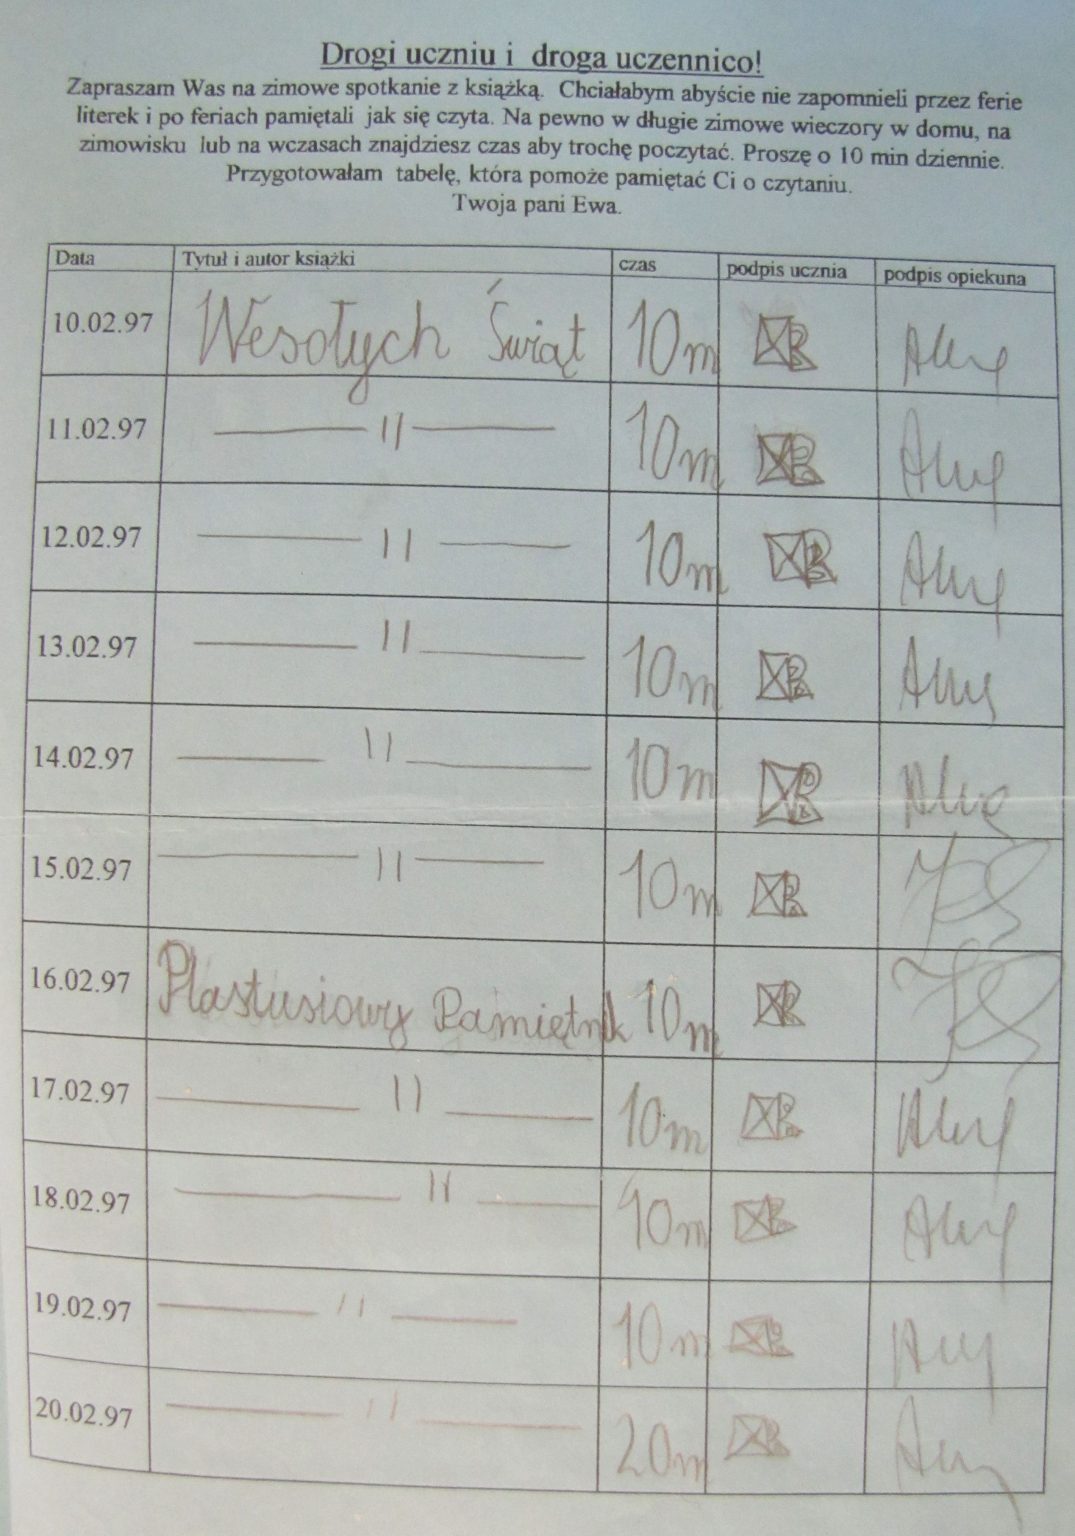 Drogi uczniu i droga uczennico!
Zapraszam Was na zimowe spotkanie z książką. Chciałabym abyście nie zapomnieli przez ferie
literek i po feriach pamiętali jak się czyta. Na pewno w długie zimowe wieczory w domu, na
zimowisku lub na wczasach znajdziesz czas aby trochę poczytać. Proszę o 10 min dziennie.
Przygotowałam tabelę, która pomoże pamiętać Ci o czytaniu.
Twoja pani Ewa.
Data Tytuł i autor książki czas podpis ucznia podpis opiekuna
10.02.97 Wesołych Świąt 10m
11.02.97 — || — 10m
12.02.97 — || — 10m
13.02.97 — || — 10m
14.02.97 — || — 10m
15.02.97 — || — 10m
16.02.97 Plastusiowy Pamiętnik 10m
17.02.97 — || — 10m
18.02.97 — || — 10m
19.02.97 — || — 10m
20.02.97 — || — 20m